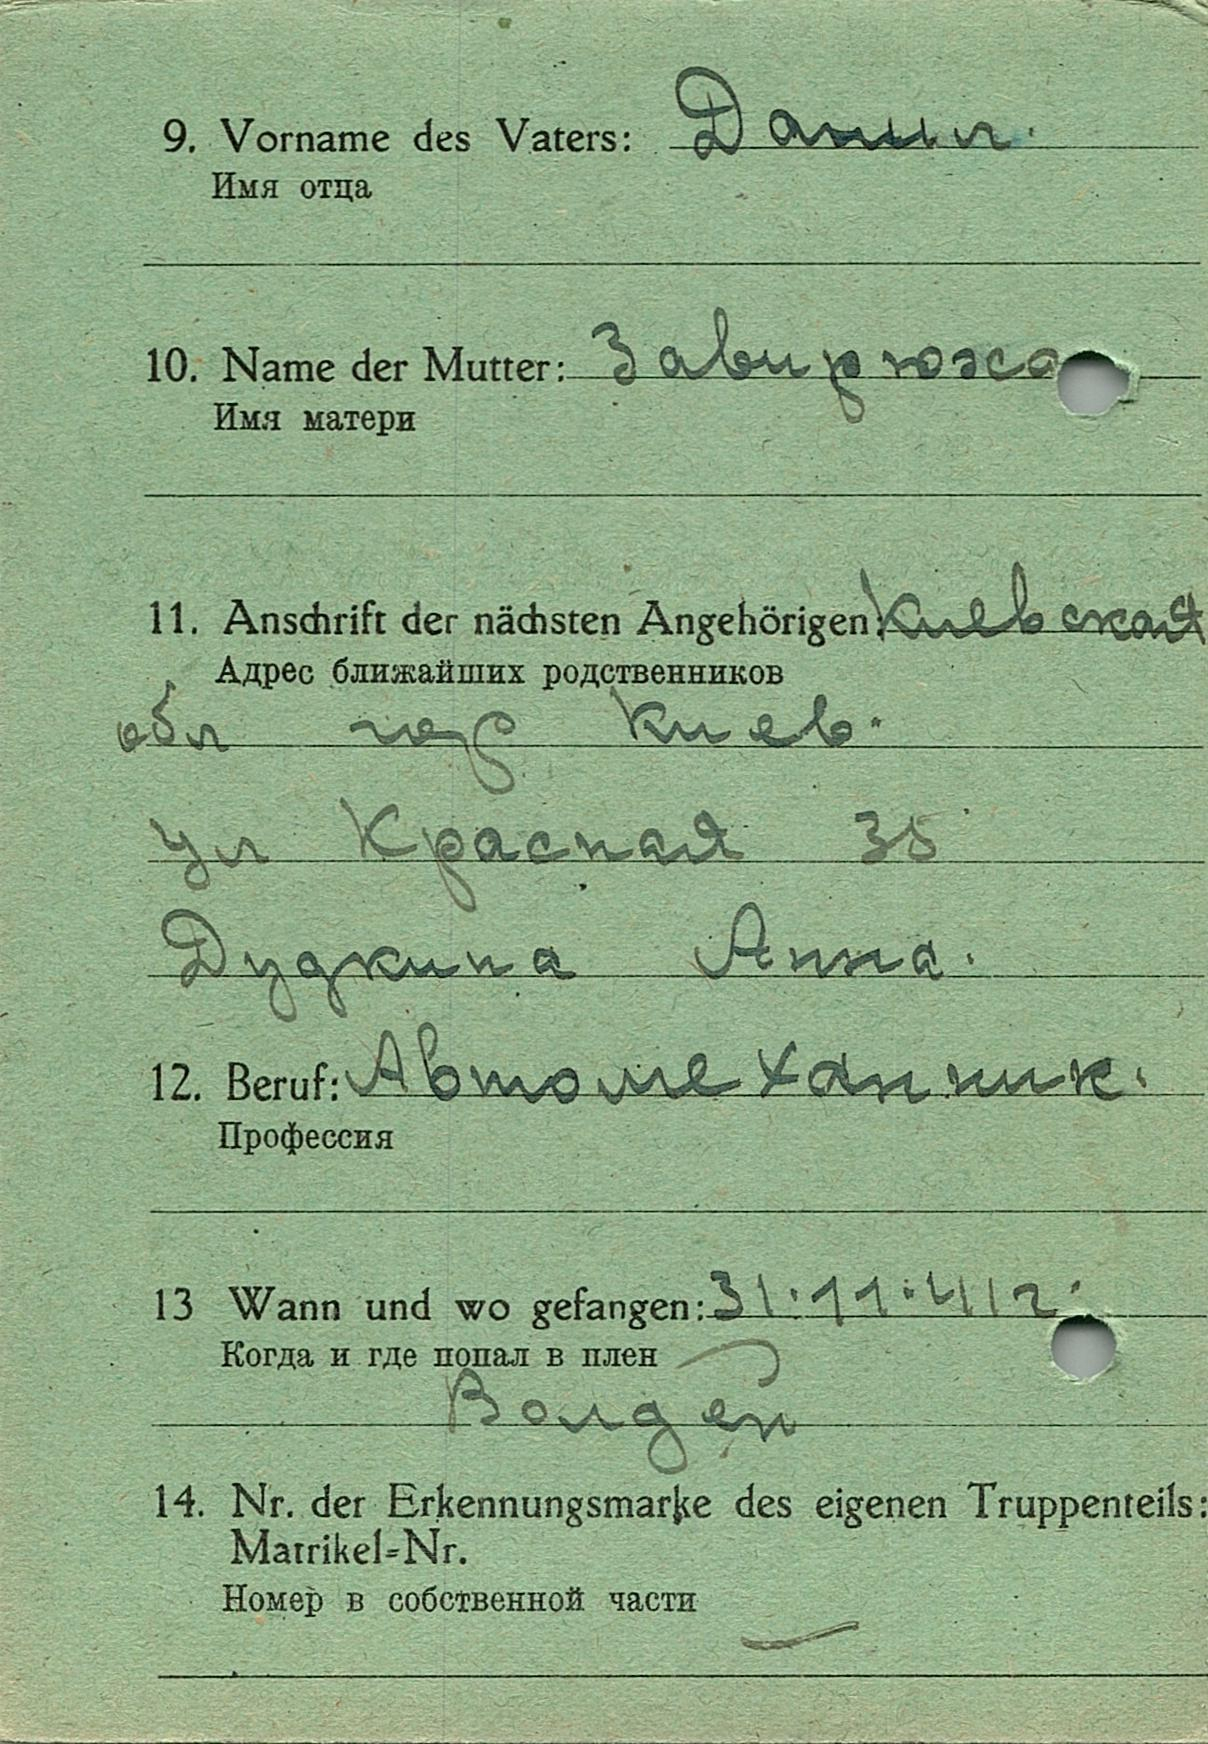 9. Vorname des Vaters: Данил.
Имя отца
10. Name der Mutter: Завирюха
Имя матери
11. Anschrift der nächsten Angehörigen: Киевская
Адрес ближайших родственников
обл гор Киев.
ул Красная 35
Дудкина Анна.
12. Beruf: Автомеханник.
Профессия
13 Wann und wo gefangen: 31.11.41 г.
Когда и где попал в плен
14. Nr. der Erkennungsmarke des eigenen Truppenteils:
Matrikel-Nr.
Номер в собственной части
—